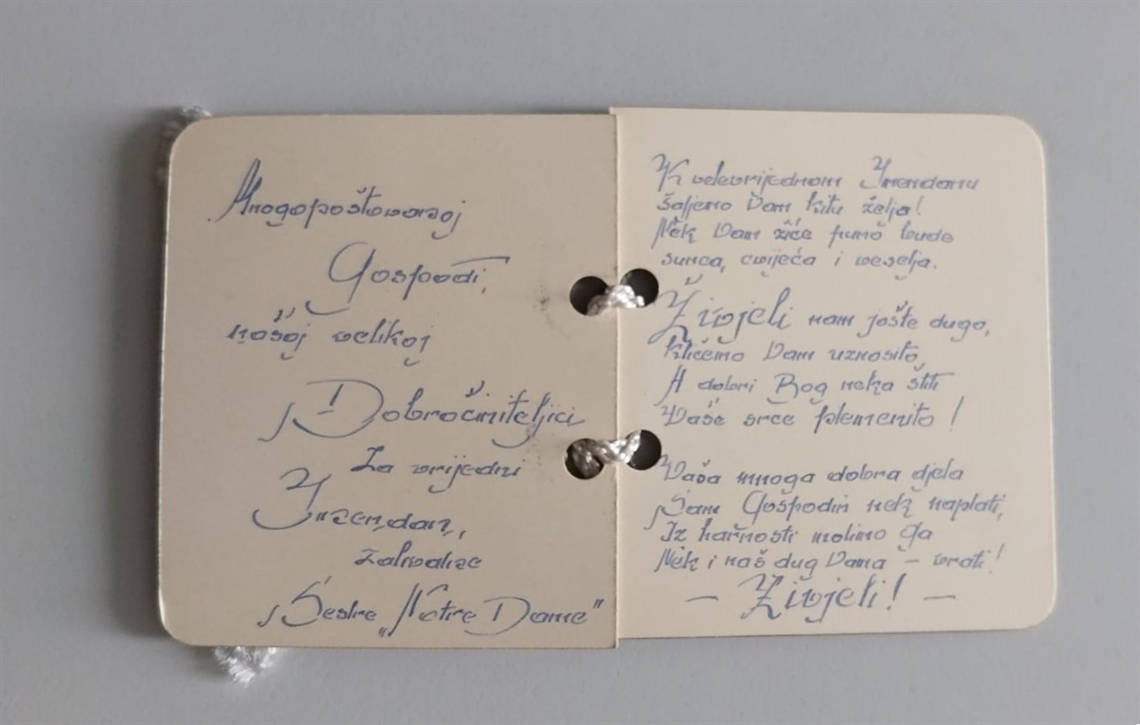 Mnogopoštovanoj
Gospodi,
našoj velikoj
Dobročiniteljici
Za vrijedni
Imendan,
zahvalne
Sestre „Notre Dame"
K velevrijednom Imendanu
šaljemo Vam kitu želja!
Nek Vam žiće puno bude
sunca, cvijeća i veselja.
Živjeli nam jošte dugo,
kličemo Vam uznosito,
A dobri Bog neka štiti
Vaše srce plemenito!
Vaša mnoga dobra djela
Sam Gospodin nek naplati,
Iz harnosti molimo Ga
Nek i naš dug Vama – vrati!
– Živjeli! –